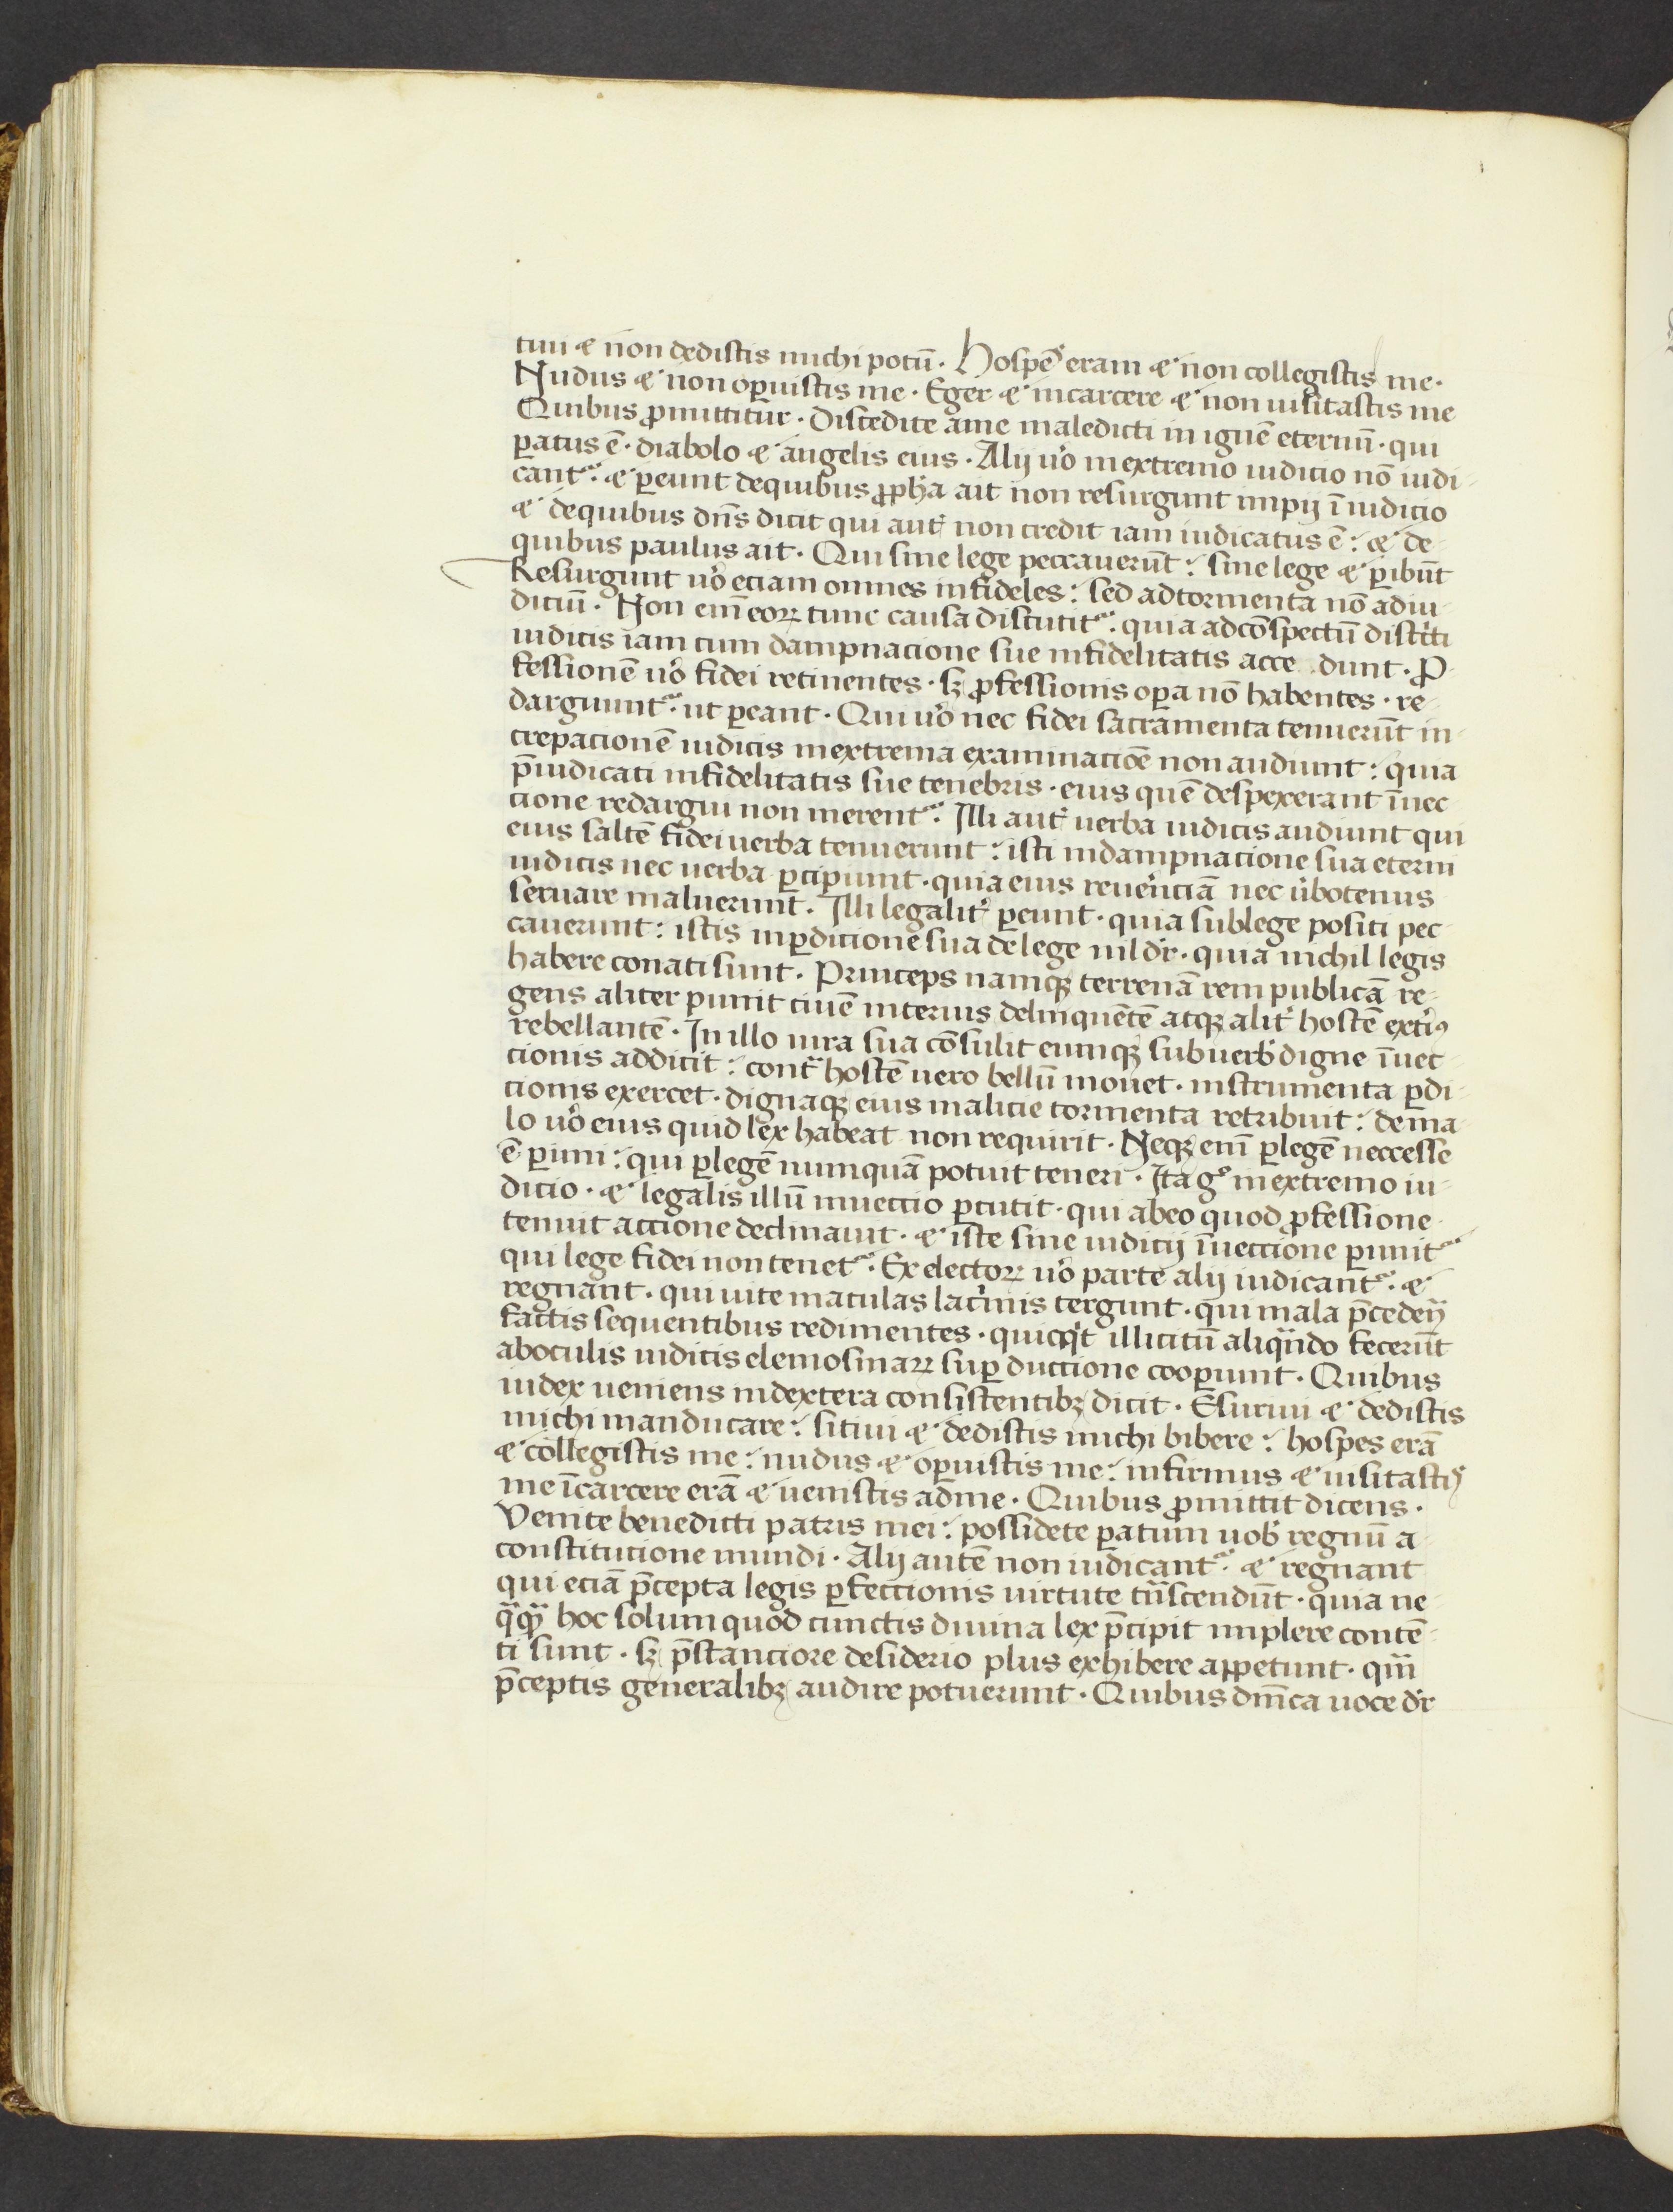 tiui et non dedistis michi potū. Hospeˢ eram et non collegistis me.
Nudus et non oꝑuistis me. Eger et incarcere et non uisitastis me
Quibus ꝓmittitur. Discedite ame maledicti in ignē eternū. qui
ꝑatus ē. diabolo et angelis eius. Alij uͦo inextremo iudicio nō iudi-
cantᷣ. et ꝑeunt dequibus ꝓpħa ait non resurgunt impij ī iudicio
et dequibus dn̄s dicit qui aut̄ non credit iam iudicatus ē: et de-
quibus paulus ait. Qui sine lege peccauerūt: sine lege et ꝑibūt
Resurgunt uͦo eciam omnes infideles: sed adtormenta nō adiu-
diciū. Non em̄ eoꝝ tunc causa discutitᷣ. quia adcōspectū districti
iudicis iam cum dampnacione sue infidelitatis acce dunt. Ꝓ-
fessionē uͦo fidei retinentes. sꝫ ꝓfessionis oꝑa nō habentes. re-
darguuntᷣ. ut ꝑeant. Qui uͦo nec fidei sacramenta tenuerūt in-
crepacionē iudicis inextrema examinaciōe non audiunt: quia
p̄iudicati infidelitatis sue tenebris. eius quē despexerant īuec
cione redargui non merentᷣ. Illi aut̄ uerba iudicis audiunt qui
eius saltē fidei uerba tenuerunt: isti indampnacione sua eterni
iudicis nec uerba ꝑcipiunt. quia eius reuer̄ciā nec u̾botenus
seruare maluerunt. Illi legalit̾ ꝑeunt. quia sublege positi pec-
cauerunt: istis inꝑdicione sua delege nil dr̄. quia nichil legis
habere conati sunt. Princeps namqꝫ terrenā rem publicā re-
gens aliter punit ciuē interius delinquētē atqꝫ alit̾ hostē ext̾iꝰ
rebellantē. In illo iura sua cōsulit eumqꝫ sub uerb̾ digne īuec-
cionis addicit: contᷓ hostē uero bellū mouet. instrumenta ꝑdi-
cionis exercet. dignaqꝫ eius malicie tormenta retribuit: dema-
lo uͦo eius quid lex habeat non requirit. Neqꝫ em̄ ꝑlegē neccesse
ē ꝑimi: qui ꝑlegē numquā potuit teneri. Ita gͦ inextremo iu-
dicio. et legalis illū inueccio ꝑcutit. qui abeo quod ꝓfessione
tenuit accione declinauit. et iste sine iudicij īueccione ꝑunitᷣ
qui lege fidei non tenetᷣ. Ex electoꝝ uͦo parte alij iudicantᷣ. et
regnant. qui uite maculas lac̾mis tergunt. qui mala p̄cedeñ
factis sequentibus redimentes. quicqͥt illicitū aliqᷓndo fecerūt
aboculis iudicis elemosinaꝝ suꝑ duccione cooꝑiunt. Quibus
iudex ueniens indextera consistentibꝫ dicit. Esuriui et dedistis
michi manducare: sitiui et dedistis michi bibere: hospes erā
et collegistis me: nudus et oꝑuistis me: infirmus et uisitastis
me īcarcere erā et uenistis adme. Quibus ꝓmittit dicens.
Venite benedicti patris mei: possidete ꝑatum uob̾ regnū a
constitucione mundi. Alij autē non iudicantᷣ. et regnant
qui eciā p̄cepta legis ꝑfeccionis uirtute tᷓnscendūt. quia ne-
qᷓqᷓ hoc solum quod cunctis diuina lex p̄cipit implere contē-
ti sunt. sꝫ p̄stanciore desiderio plus exhibere appetunt. qᷓm
p̄ceptis generalibꝫ audire potuerunt. Quibus dn̄ica uoce dr̄